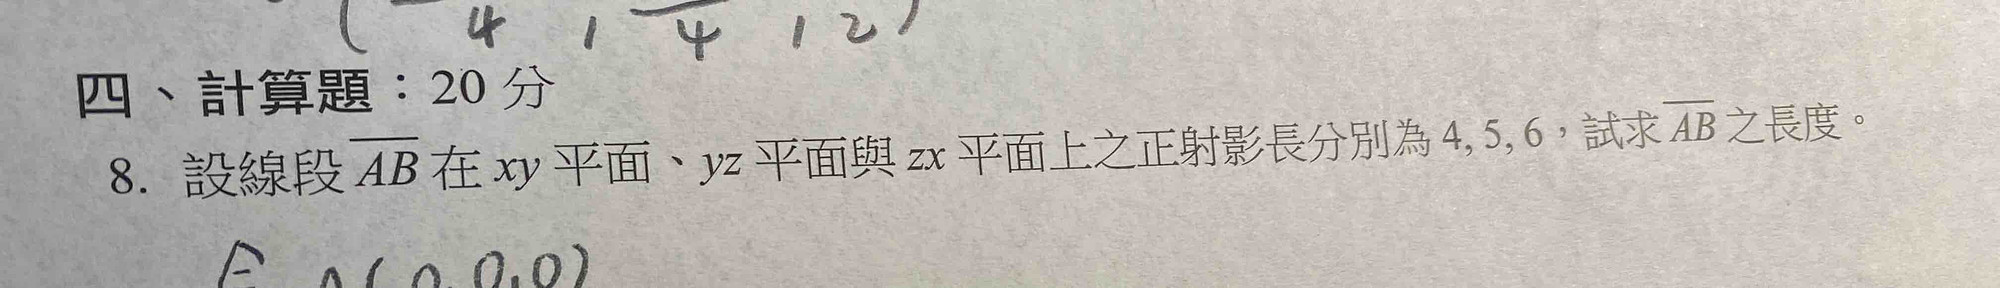 ( 4 , 4 , 2 )
四、計算題：20 分
8. 設線段 AB 在 xy 平面、yz 平面與 zx 平面上之正射影長分別為 4, 5, 6，試求 AB 之長度。
A(0,0,0)